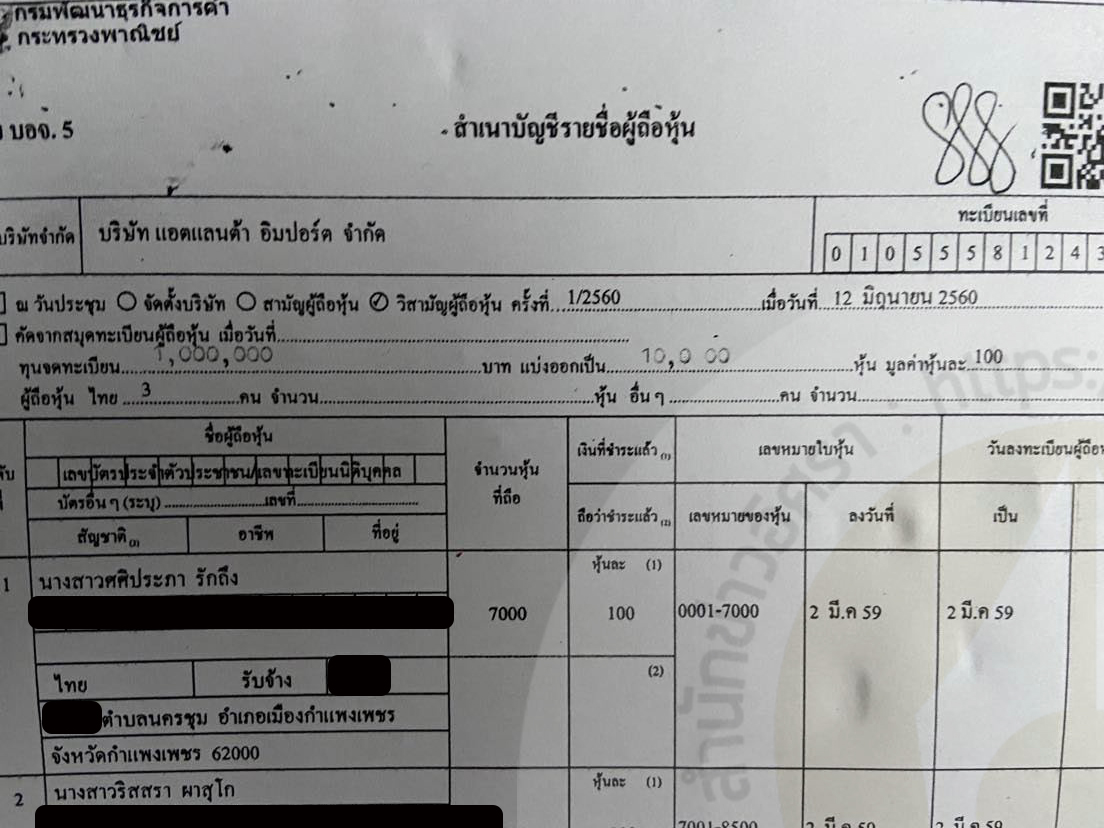 กรมพัฒนาธุรกิจการค้า
กระทรวงพาณิชย์
บอจ. 5
สำเนาบัญชีรายชื่อผู้ถือหุ้น
ทะเบียนเลขที่
บริษัทจำกัด บริษัท แอตแลนต้า อิมปอร์ต จำกัด 0 1 0 5 5 5 8 1 2 4 3
ณ วันประชุม จัดตั้งบริษัท สามัญผู้ถือหุ้น วิสามัญผู้ถือหุ้น ครั้งที่ 1/2560 เมื่อวันที่ 12 มิถุนายน 2560
คัดจากสมุดทะเบียนผู้ถือหุ้น เมื่อวันที่
ทุนจดทะเบียน 1,000,000 บาท แบ่งออกเป็น 10,000 หุ้น มูลค่าหุ้นละ 100
ผู้ถือหุ้น ไทย 3 คน จำนวน หุ้น อื่น ๆ คน จำนวน
https:
ชื่อผู้ถือหุ้น
เลขบัตรประจำตัวประชาชน/เลขทะเบียนนิติบุคคล
บัตรอื่น ๆ (ระบุ) เลขที่
สัญชาติ (3) อาชีพ ที่อยู่
จำนวนหุ้น
ที่ถือ
เงินที่ชำระแล้ว (1)
ถือว่าชำระแล้ว (2)
เลขหมายใบหุ้น
เลขหมายของหุ้น ลงวันที่
วันลงทะเบียนผู้ถือ
เป็น
1 นางสาวศศิประภา รักถึง
7000
หุ้นละ (1)
100
0001-7000 2 มี.ค 59 2 มี.ค 59
(2)
ไทย รับจ้าง
ตำบลนครชุม อำเภอเมืองกำแพงเพชร
จังหวัดกำแพงเพชร 62000
2 นางสาวริสสรา ผาสุโก
หุ้นละ (1)
7001-8500 2 มี.ค 59 2 มี.ค 59
สำนักข่าวอิศรา :